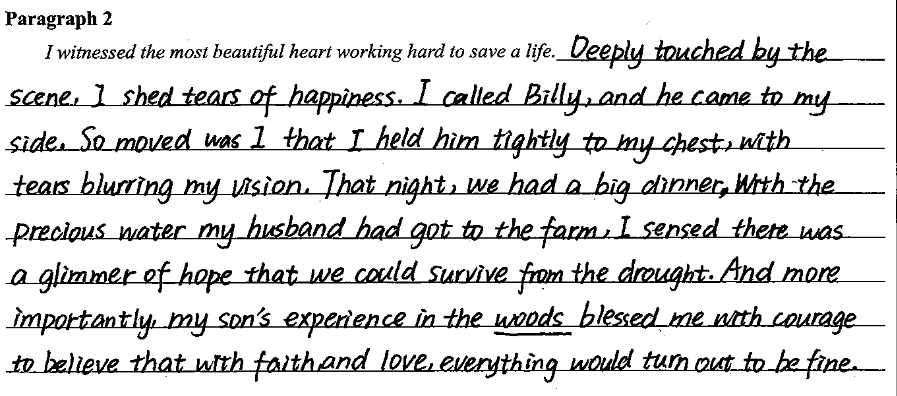 Paragraph 2
I witnessed the most beautiful heart working hard to save a life. Deeply touched by the
scene, I shed tears of happiness. I called Billy, and he came to my
side. So moved was I that I held him tightly to my chest, with
tears blurring my vision. That night, we had a big dinner, With the
precious water my husband had got to the farm, I sensed there was
a glimmer of hope that we could survive from the drought. And more
importantly, my son's experience in the woods blessed me with courage
to believe that with faith and love, everything would turn out to be fine.